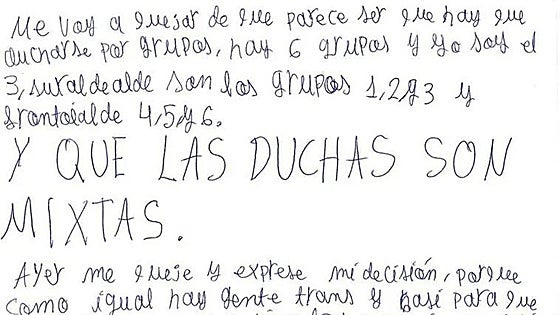 Me voy a quejar de que parece ser que hay que
ducharse por grupos, hay 6 grupos y yo soy el
3, suraldealde son los grupos 1,2y3 y
frontoialde 4,5y6.
Y QUE LAS DUCHAS SON
MIXTAS.
Ayer me queje y exprese mi decisión, porque
como igual hay gente trans y basi para que